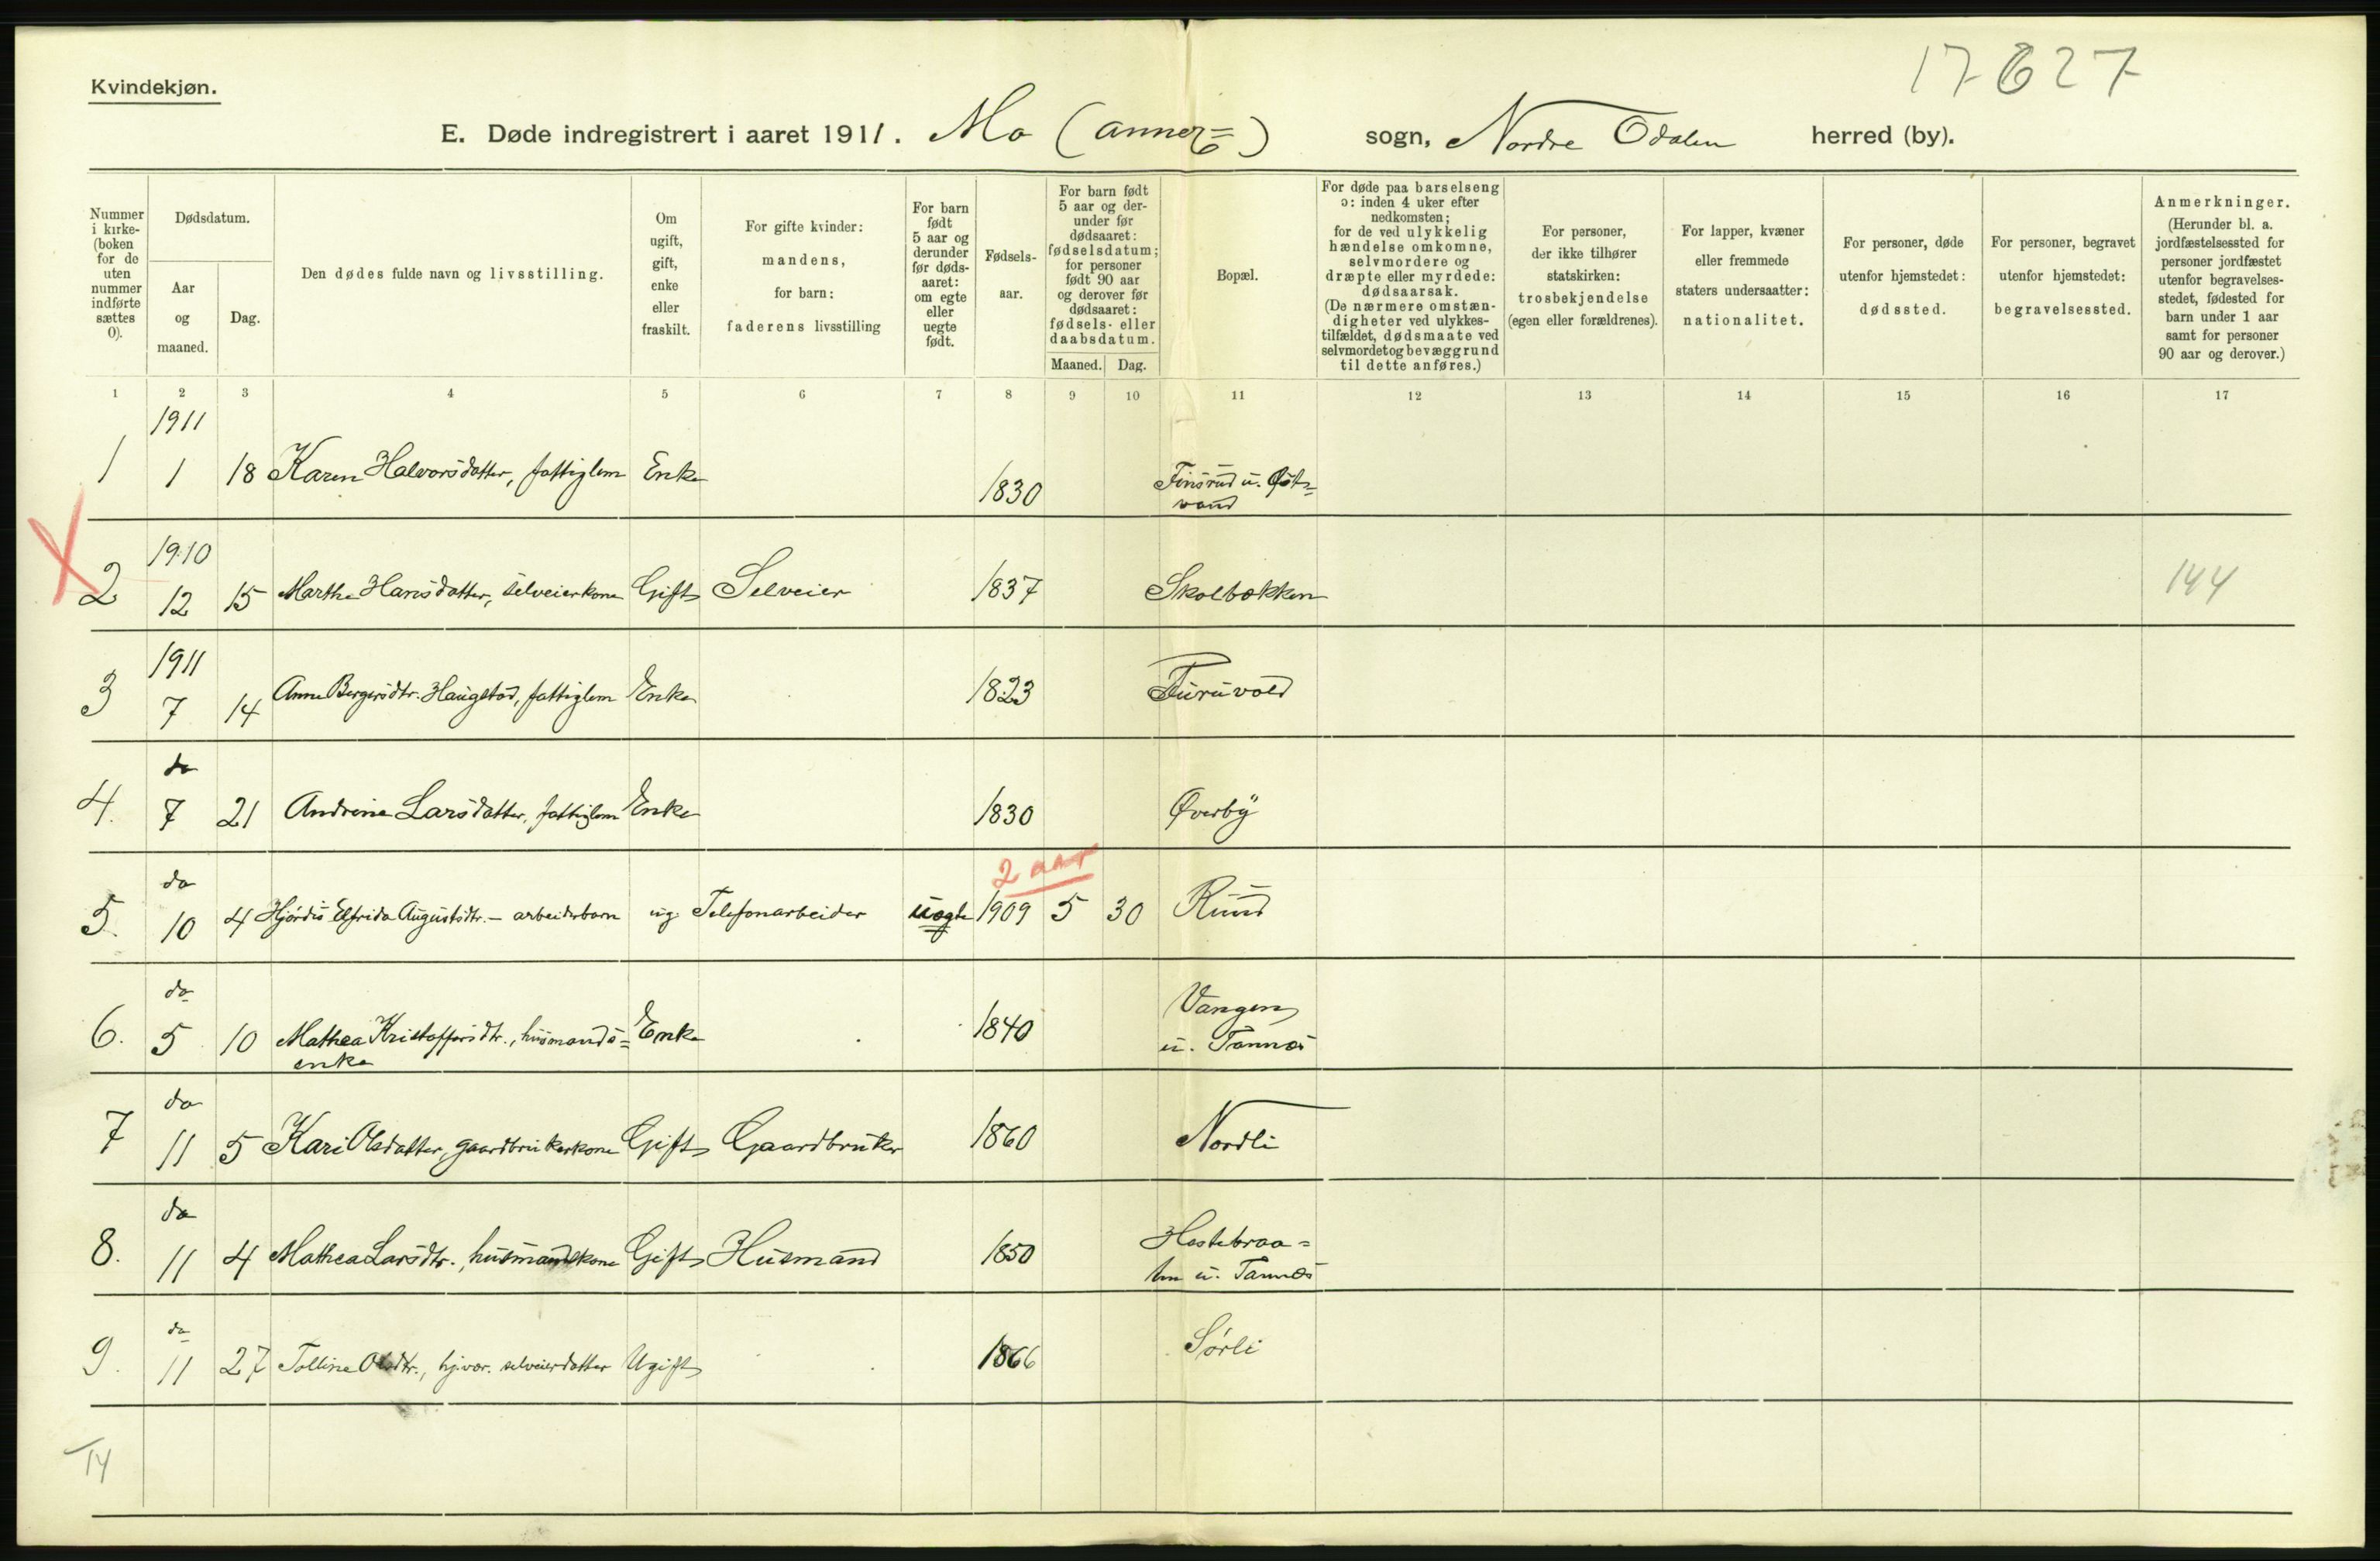 17627
Kvindekjøn.
E. Døde indregistrert i aaret 1911. Mo (annex) sogn, Nordre Odalen herred (by).
Nummer i kirke- (boken for de uten nummer indførte sættes 0).
Dødsdatum.
Aar og maaned.
Dag.
Den dødes fulde navn og livsstilling.
Om ugift, gift, enke eller fraskilt.
For gifte kvinder: mandens, for barn: faderens livsstilling
For barn født 5 aar og derunder før døds- aaret: om egte eller uegte født.
Fødsels- aar.
For barn født 5 aar og der- under før dødsaaret: fødselsdatum; for personer født 90 aar og derover før dødsaaret: fødsels- eller daabsdatum.
Maaned. Dag.
Bopæl.
For døde paa barselseng ɔ: inden 4 uker efter nedkomsten; for de ved ulykkelig hændelse omkomne, selvmordere og dræpte eller myrdede: dødsaarsak. (De nærmere omstæn- digheter ved ulykkes- tilfældet, dødsmaate ved selvmordet og bevæggrund til dette anføres.)
For personer, der ikke tilhører statskirken: trosbekjendelse (egen eller forældrenes).
For lapper, kvæner eller fremmede staters undersaatter: nationalitet.
For personer, døde utenfor hjemstedet: dødssted.
For personer, begravet utenfor hjemstedet: begravelsessted.
Anmerkninger. (Herunder bl. a. jordfæstelsessted for personer jordfæstet utenfor begravelses- stedet, fødested for barn under 1 aar samt for personer 90 aar og derover.)
1 2 3 4 5 6 7 8 9 10 11 12 13 14 15 16 17
1911
1 1 18 Karen Halvorsdatter, fattiglem Enke 1830 Finsrud u. Øst=
vand
1910
2 12 15 Marthe Hansdatter, selveierkone Gift Selveier 1837 Skolbækken 144
1911
3 7 14 Anne Bergersdtr. Haugstad, fattiglem Enke 1823 Furuvold
do
4. 7 21 Andrine Larsdatter, fattiglem Enke 1830 Øverby
2 aar
do
5. 10 4 Hjørdis Elfrida Augustsdtr. - arbeiderbarn ug. Telefonarbeider uegte 1909 5 30 Ruud
do
6. 5 10 Mathea Kristoffersdtr., husmands= Enke 1840 Vangen
enke u. Tannes
do
7 11 5 Kari Olsdatter, gaardbrukerkone Gift Gaardbruker 1860 Nordli
do
8. 11 4 Mathea Larsdtr., husmandskone Gift Husmand 1850 Hestebraa=
ten u. Tannes
do
9. 11 27 Tolline Olsdtr., hjvær. selveierdatter Ugift 1866 Sørli
14